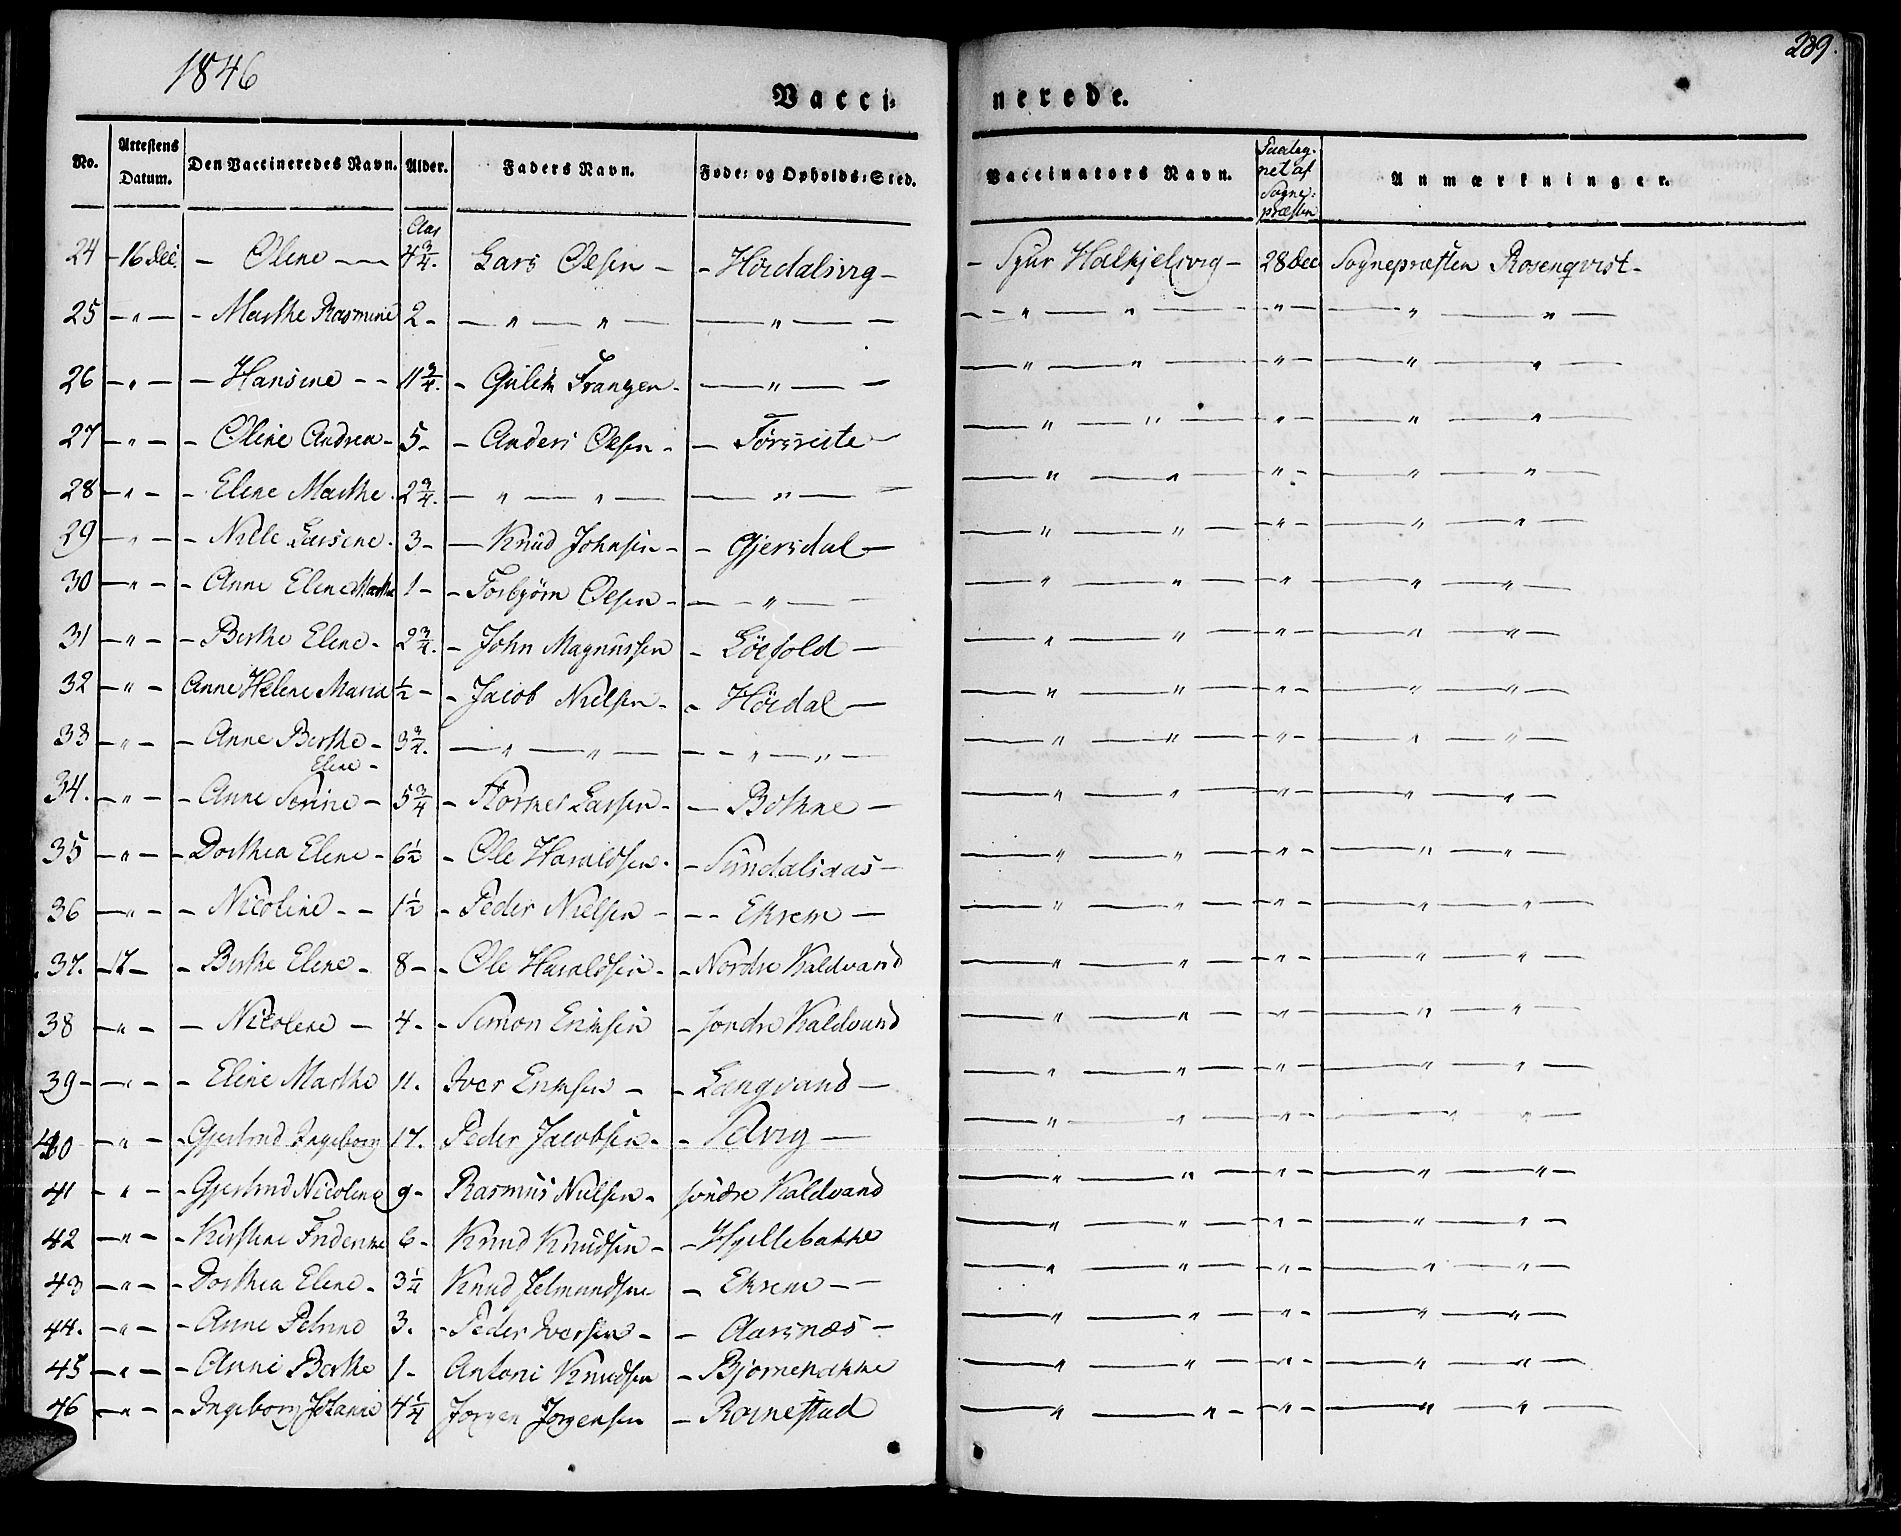 1846
289.
Vacci-nerede.
No. Attestens Datum. Den Vaccineredes Navn. Alder. Faders Navn. Føde- og Opholds-Sted. Vaccinators Navn. Paateg-net af Sogne-præsten Anmærkninger.
Aar
24 - 16 Dec. - Oline - - 4 3/4. Lars Olsen - - Hördalsvig - - Sjur Halkjelsvig - 28 Dec Sognepræsten Rosenqvist -
25 - " - - Marthe Rasmine 2 - - " - " - - " - - - " - " - - " - - " - " -
26 - " - - Hansine - - 11 3/4. - Gulik Frantzen - - " - - - " - " - - " - - " - " -
27 - " - - Oline Andrea - 5 - - Anders Olsen - - Førsreite - - " - " - - " - - " - " -
28 - " - - Elene Marthe. 2 3/4. - " - " - - " - - - " - " - - " - - " - " -
29 - " - - Nille Larsine. 3 - - Knud Johnsen - - Gjersdal - - " - " - - " - - " - " -
30 - " - - Anne Elene Marthe 1 - - Torbjørn Olsen - - - " - - - " - " - - " - - " - " -
31 - " - - Berthe Elene - 2 3/4. - John Magnussen - Löefold - - " - " - - " - - " - " -
32 - " - Anne Helene Maria 1/2 - - Jacob Nielsen - - Hördal - - " - " - - " - - " - " -
33 - " - - Anne Berthe - 3 3/4. - " - " - - - " - " - - " - " - - " - - " - " -
Elene -
34. - " - - Anne Serine - 5 3/4 - Larsen - - Bothne - - " - " - - " - - " - " -
35 - " - - Dorthea Elene - 6 1/2 - Ole Haraldsen - - Sundalsaas - - " - " - - " - - " - " -
36 - " - - Nicoline - - 1 1/2 - Peder Nielsen - - - Ekrem - - " - " - - " - - " - " -
37. - 17 - - Berthe Elene - 8 - - Ole Haraldsen - - Nordre Kaldvand - " - " - - " - - " - " -
38 - " - - Nicolene - 4 - - Simon Eriksen - søndre Kaldvand - " - " - - " - - " - " -
39 - - " - - Eline Marthe 11. Iver Eriksen - - Langvand - - " - " - - " - - " - " -
40 - " - - Gjertrud Ingeborg 17. Peder Jacobsen - - - - " - " - - " - - " - " -
41 - " - - Gjertrud Nicoline 9 - Rasmus Nielsen - søndre Kaldvand - " - " - - " - - " - " -
42 - " - - Kirstine Frederikke 6 - Knud Knudsen - - Hjellebakke - " - " - - " - - " - " -
43 - " - - Dorthea Elene - 3 1/4 Knud - Ekrem - - - " - " - - " - - " - " -
44. - " - - Anne Petrine 3. - Peder Iversen - - Aarsnæs - - " - " - - " - - " - " -
45 - " - - Anne Berthe 1 - Antoni Knudsen - Bjørnebakke - " - " - - " - - " - " -
46 - " - - Ingeborg Johanne 4 1/4 Jørgen Jørgensen - - " - " - - " - - " - " -